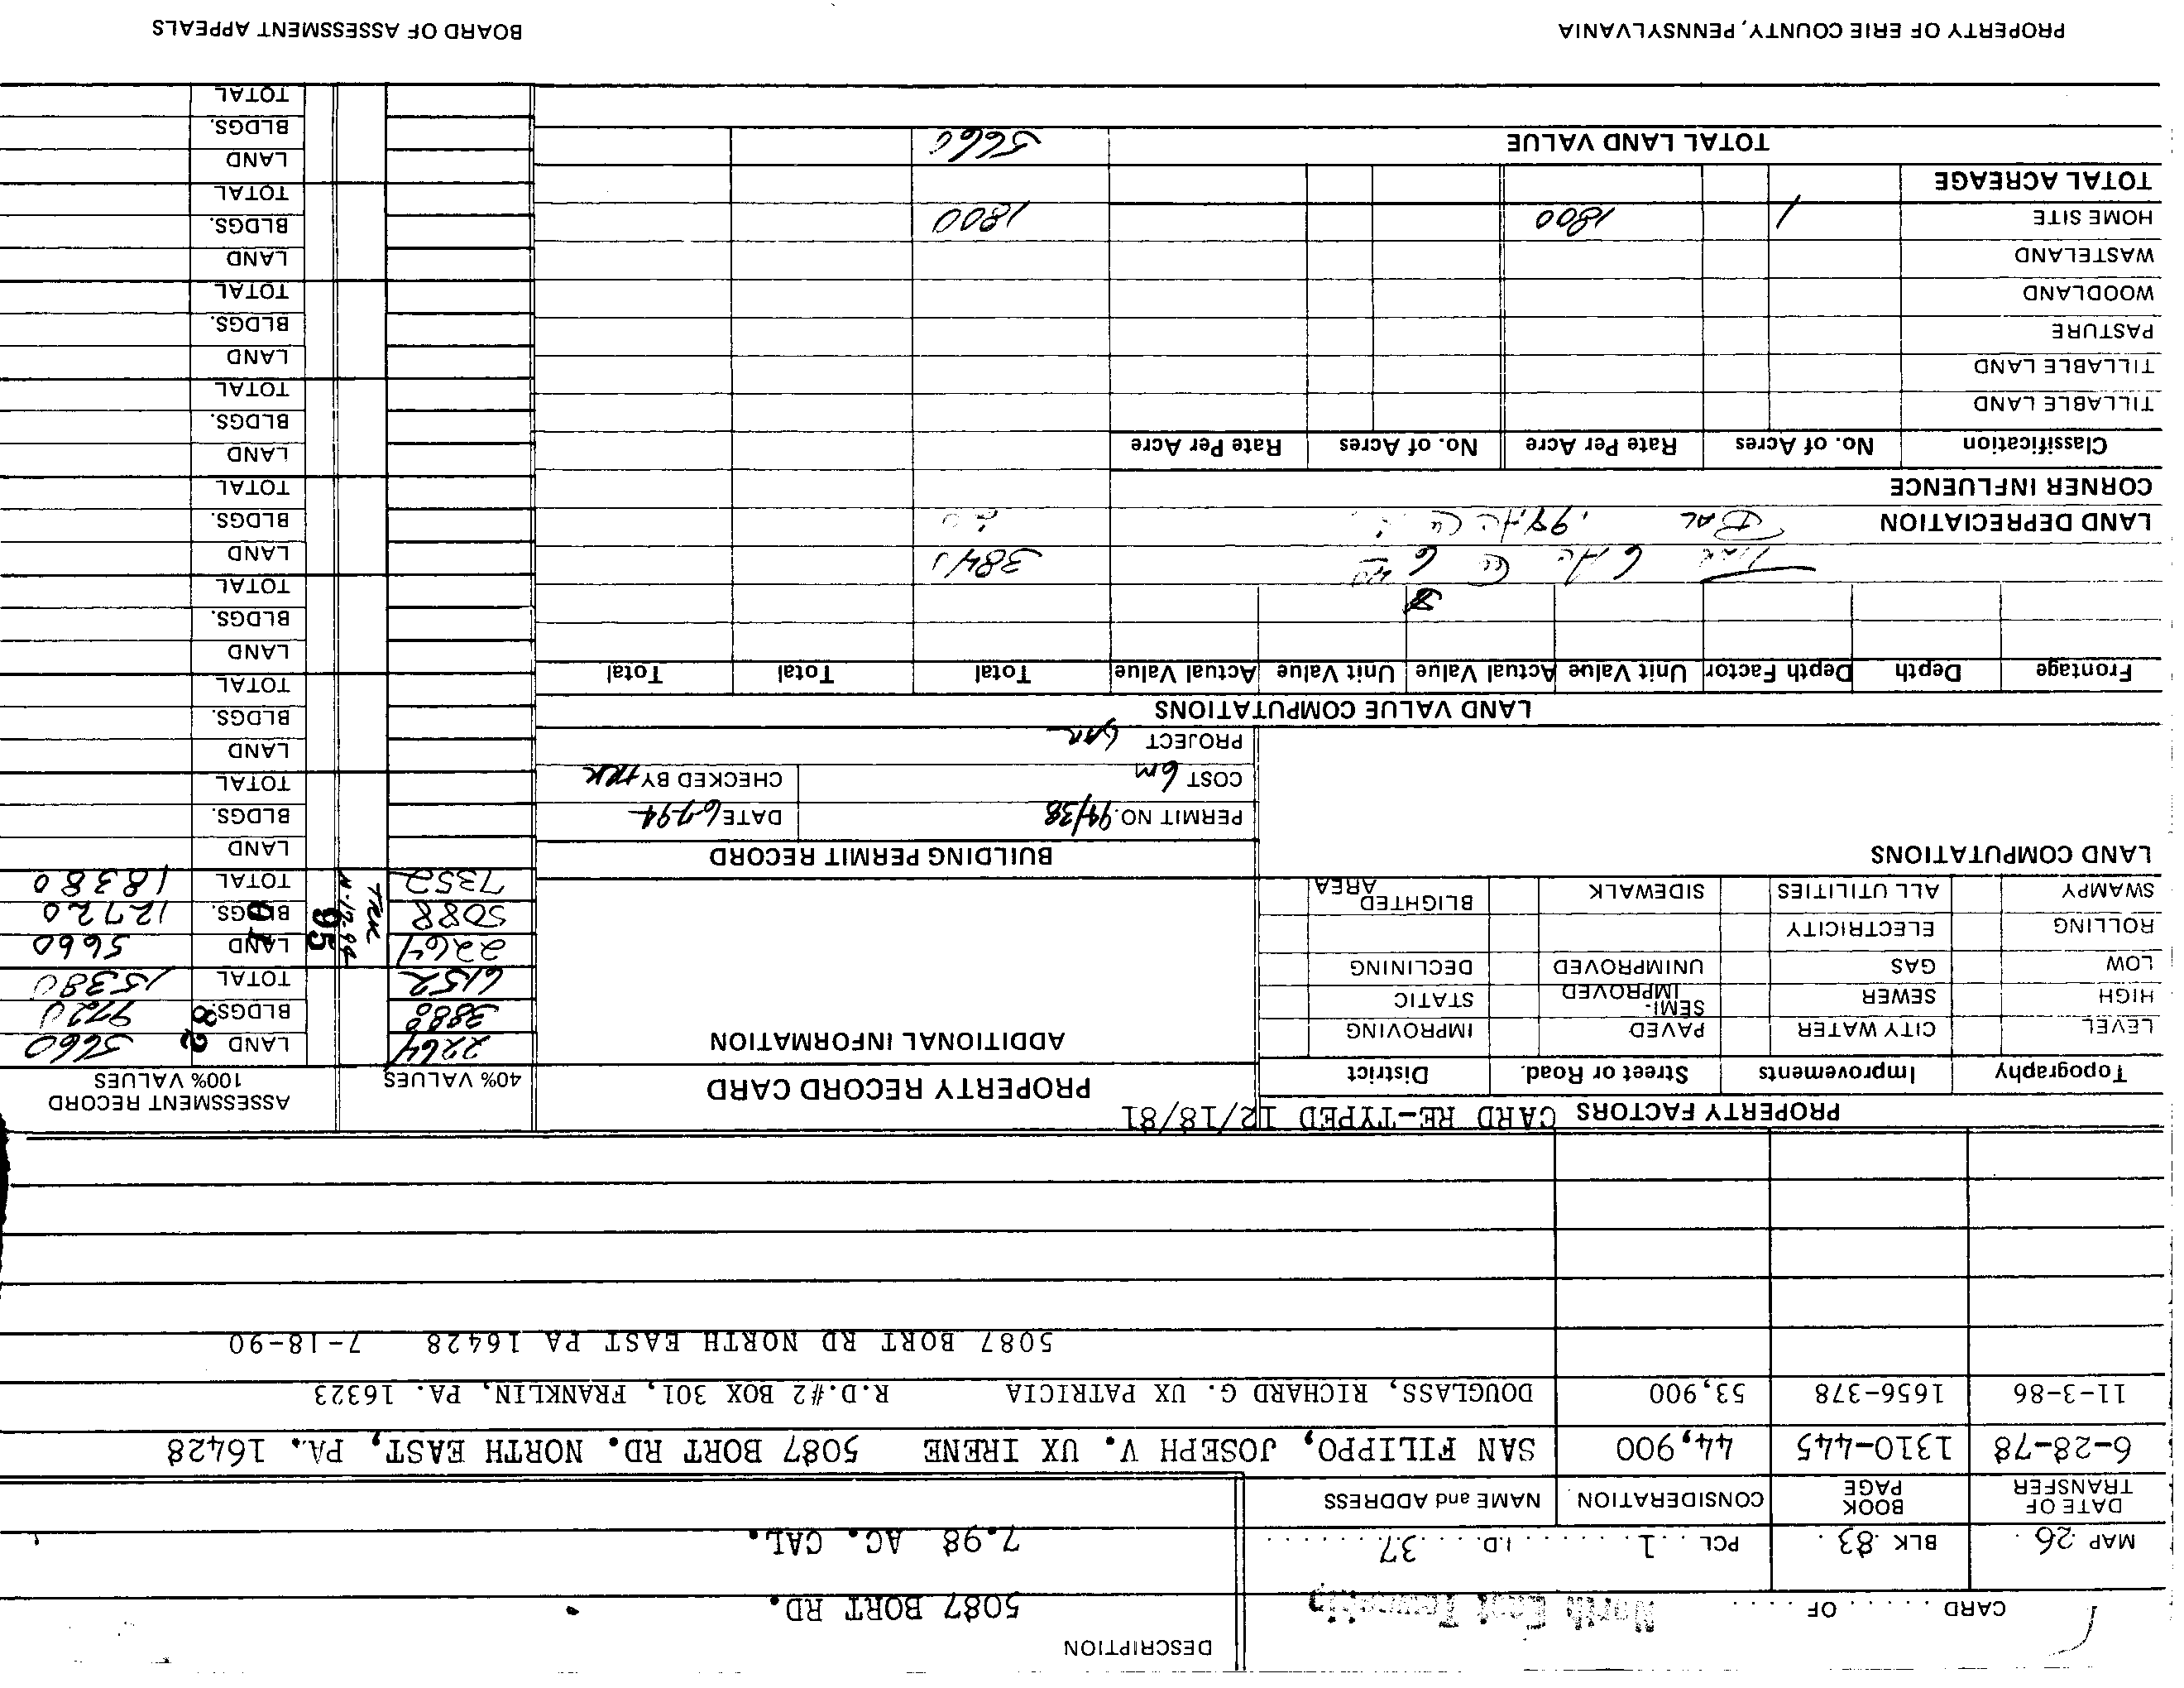 CARD ...... OF ..... North East Township
DESCRIPTION
5087 BORT RD.
MAP 26 . BLK 83 . PCL ... 1 ...... I.D. .... 37 ......
7.98 AC. CAL.
DATE OF TRANSFER BOOK PAGE CONSIDERATION NAME and ADDRESS
6-28-78 1310-445 44,900 SAN FILIPPO, JOSEPH V. UX IRENE 5087 BORT RD. NORTH EAST, PA. 16428
11-3-86 1656-378 53,900 DOUGLASS, RICHARD G. UX PATRICIA R.D.#2 BOX 301, FRANKLIN, PA. 16323
5087 BORT RD NORTH EAST PA 16428 7-18-90
PROPERTY FACTORS CARD RE-TYPED 12/18/81
Topography Improvements Street or Road. District
LEVEL CITY WATER PAVED IMPROVING
HIGH SEWER SEMI-IMPROVED STATIC
LOW GAS UNIMPROVED DECLINING
ROLLING ELECTRICITY
SWAMPY ALL UTILITIES SIDEWALK BLIGHTED AREA
LAND COMPUTATIONS
PROPERTY RECORD CARD
ADDITIONAL INFORMATION
BUILDING PERMIT RECORD
PERMIT NO. 94/38 DATE 6-7-94
COST 6m CHECKED BY TRK
PROJECT GAR
40% VALUES ASSESSMENT RECORD 100% VALUES
2264 82 LAND 5660
3888 BLDGS. 9720
6152 TOTAL 15380
2264 95 LAND 5660
5088 TRK BLDGS. 12720
7352 11-17-94 TOTAL 18380
LAND
BLDGS.
TOTAL
LAND
BLDGS.
TOTAL
LAND
BLDGS.
TOTAL
LAND
BLDGS.
TOTAL
LAND
BLDGS.
TOTAL
LAND
BLDGS.
TOTAL
LAND
BLDGS.
TOTAL
LAND
BLDGS.
TOTAL
LAND VALUE COMPUTATIONS
Frontage Depth Depth Factor Unit Value Actual Value Unit Value Actual Value Total Total Total
6 Ac @ 6 3840
LAND DEPRECIATION BAL .98 Ac @ 20
CORNER INFLUENCE
Classification No. of Acres Rate Per Acre No. of Acres Rate Per Acre
TILLABLE LAND
TILLABLE LAND
PASTURE
WOODLAND
WASTELAND
HOME SITE 1 1800 1800
TOTAL ACREAGE
TOTAL LAND VALUE 5660
PROPERTY OF ERIE COUNTY, PENNSYLVANIA BOARD OF ASSESSMENT APPEALS